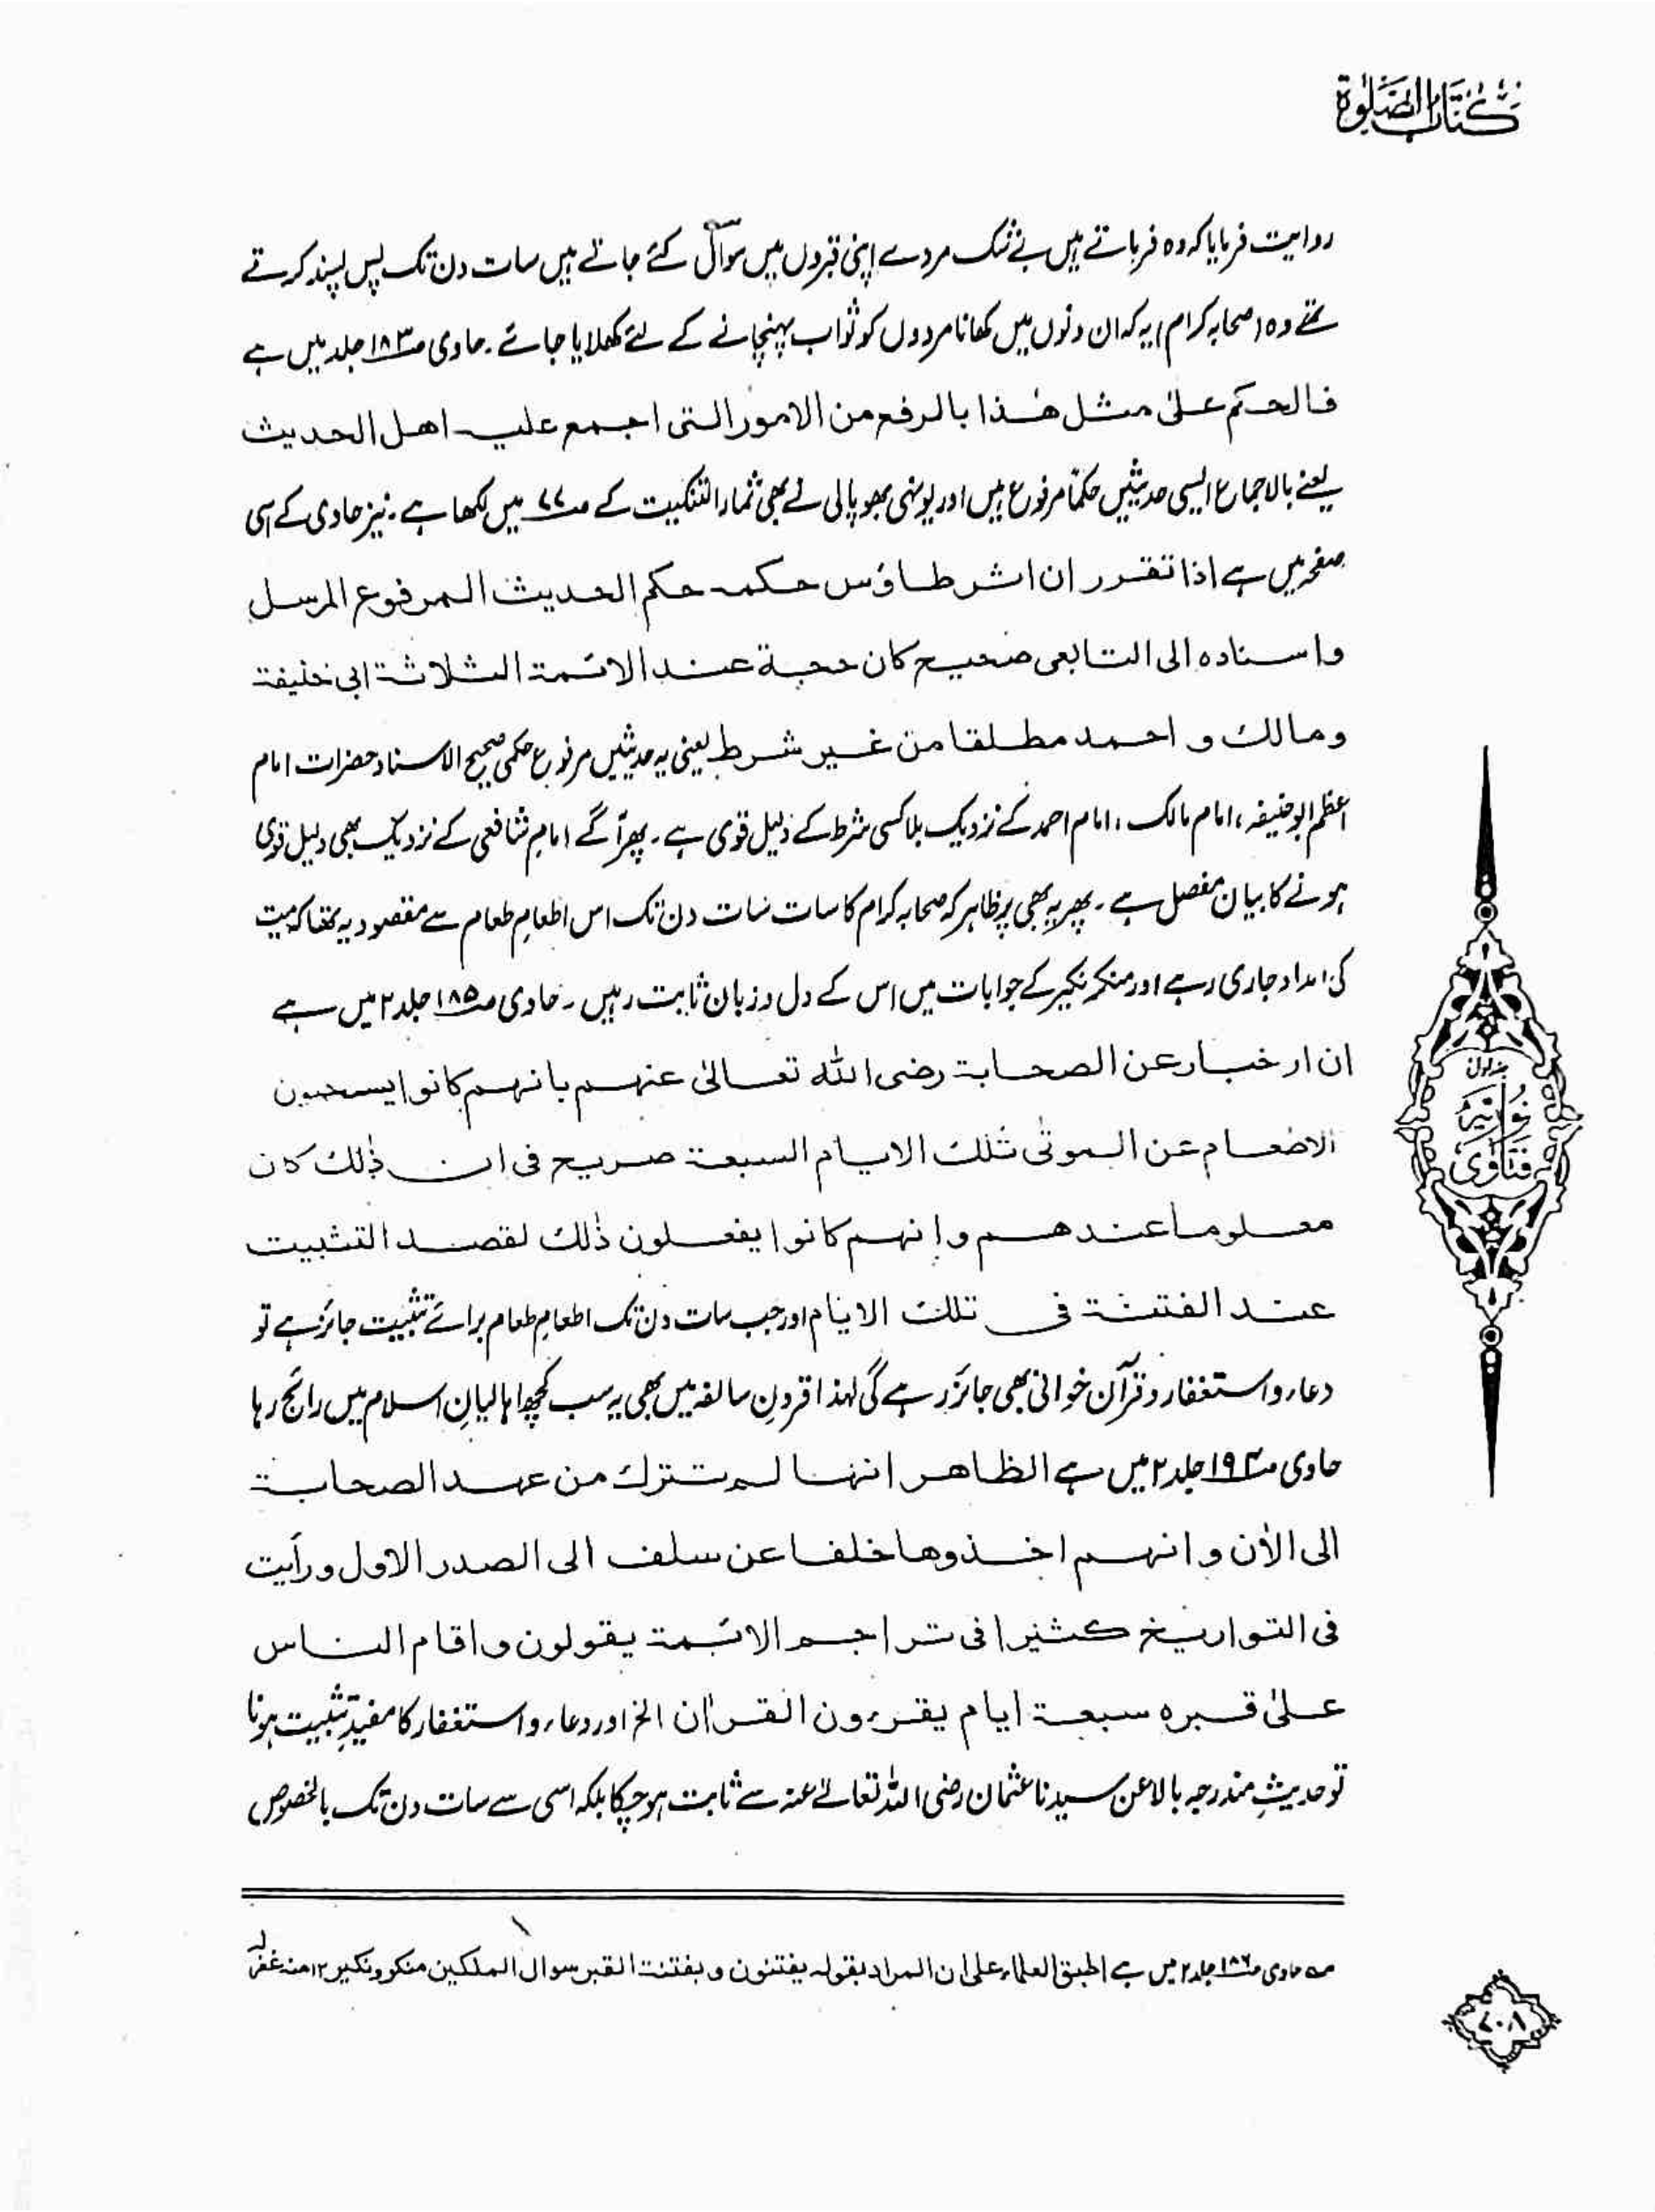 كتاب الصلوٰة
روایت فرمایا کہ وہ فرماتے ہیں بے شک مردے اپنی قبروں میں سوال کئے جاتے ہیں سات دن تک پس پسند کرتے
تھے وہ (صحابہ کرام) یہ کہ ان دنوں میں کھانا مردوں کو ثواب پہنچانے کے لئے کھلایا جائے۔ حاوی ص۱۸۳ جلد میں ہے
فالحكم على مثل هٰذا بالرفع من الامور التى اجمع عليه اهل الحديث
یعنے بالاجماع ایسی حدیثیں حکماً مرفوع ہیں اور یونہی بھوپالی نے بھی ثمار التنکیت کے ص۷۷ میں لکھا ہے۔ نیز حاوی کے اسی
صفحہ میں ہے اذا تقرر ان اثر طاؤس حكمه حكم الحديث المرفوع المرسل
واسناده الى التابعى صحيح كان حجة عند الائمة الثلاثة ابى حنيفة
ومالك و احمد مطلقا من غير شرط یعنی یہ حدیثیں مرفوع حکمی صحیح الاسناد حضرات امام
اعظم ابوحنیفہ، امام مالک، امام احمد کے نزدیک بلا کسی شرط کے دلیل قوی ہے۔ پھر آگے امام شافعی کے نزدیک بھی دلیل قوی
ہونے کا بیان مفصل ہے۔ پھر یہ بھی پر ظاہر کہ صحابہ کرام کا سات سات دن تک اس اطعامِ طعام سے مقصود یہ تھا کہ میت
کی امداد جاری رہے اور منکر نکیر کے جوابات میں اس کے دل و زبان ثابت رہیں۔ حاوی ص۱۸۵ جلد ۲ میں ہے
ان ار خبار عن الصحابة رضى الله تعالىٰ عنهم بانهم كانوا يستحبون
الاطعام عن الموتٰى تلك الايام السبعة صريح فى ان ذٰلك كان
معلوما عندهم وانهم كانوا يفعلون ذٰلك لقصد التثبيت
عند الفتنة فى تلك الايام اور جب سات دن تک اطعامِ طعام برائے تثبیت جائز ہے تو
دعاء و استغفار و قرآن خوانی بھی جائز رہے گی لہٰذا قرونِ سالفہ میں بھی یہ سب کچھ اہالیانِ اسلام میں رائج رہا
حاوی ص۱۹۴ جلد ۲ میں ہے الظاهر انها لم تترك من عهد الصحابة
الى الآن و انهم اخذوها خلفا عن سلف الى الصدر الاول ورأيت
فى التواريخ كثيرا فى تراجم الائمة يقولون واقام الناس
علىٰ قبره سبعة ايام يقرءون القرآن الخ اور دعاء و استغفار کا مفیدِ تثبیت ہونا
تو حدیثِ مندرجہ بالا عن سیدنا عثمان رضی اللہ تعالےٰ عنہ سے ثابت ہو چکا بلکہ اسی سے سات دن تک بالخصوص
حاوی جلد ۲ میں ہے اطبق العلماء على ان المراد بقوله يفتنون و بفتنة القبر سوال الملكين منكر ونكير ۱۲ منہ غفرلہ
جلد اول
فتاوىٰ نوريه
۷۰۸